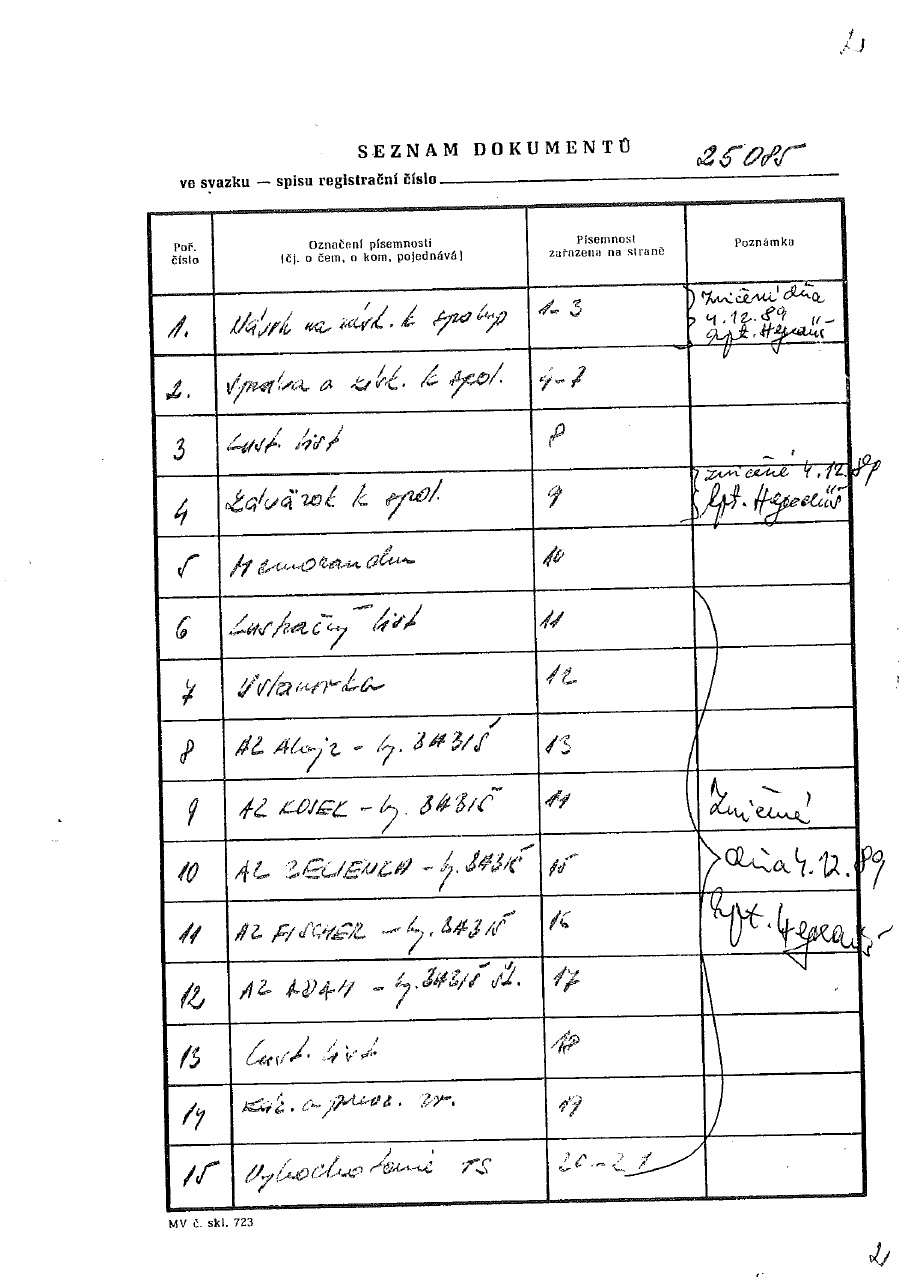 2
SEZNAM DOKUMENTŮ
ve svazku — spisu registrační číslo 25085
Poř. číslo
Označení písemnosti
(čj. o čem, o kom, pojednává)
Písemnost
zařazena na straně
Poznámka
1. Návrh na získ. k spolup 1-3
Zničení dňa
4.12.89
kpt. Hegedüš
2. Správa a získ. k spol. 4-7
3 Lust. list 8
4 Záväzok k spol. 9
zničené 4.12.89
kpt. Hegedüš
5 Memorandum 10
6 Lustračný list 11
7 Ustanovka 12
8 AZ Alojz - BABIŠ 13
9 AZ KOSEK - BABIŠ
Zničené
10 AZ ZELIENKA - BABIŠ 15
dňa 4.12.89
11 AZ FISCHER - BABIŠ 16
kpt. Hegedüš
12 AZ ADAM - BABIŠ Št. 17
13 Lust. list 18
14 19
15 Vyhodnotenie TS 20-21
MV č. skl. 723
2